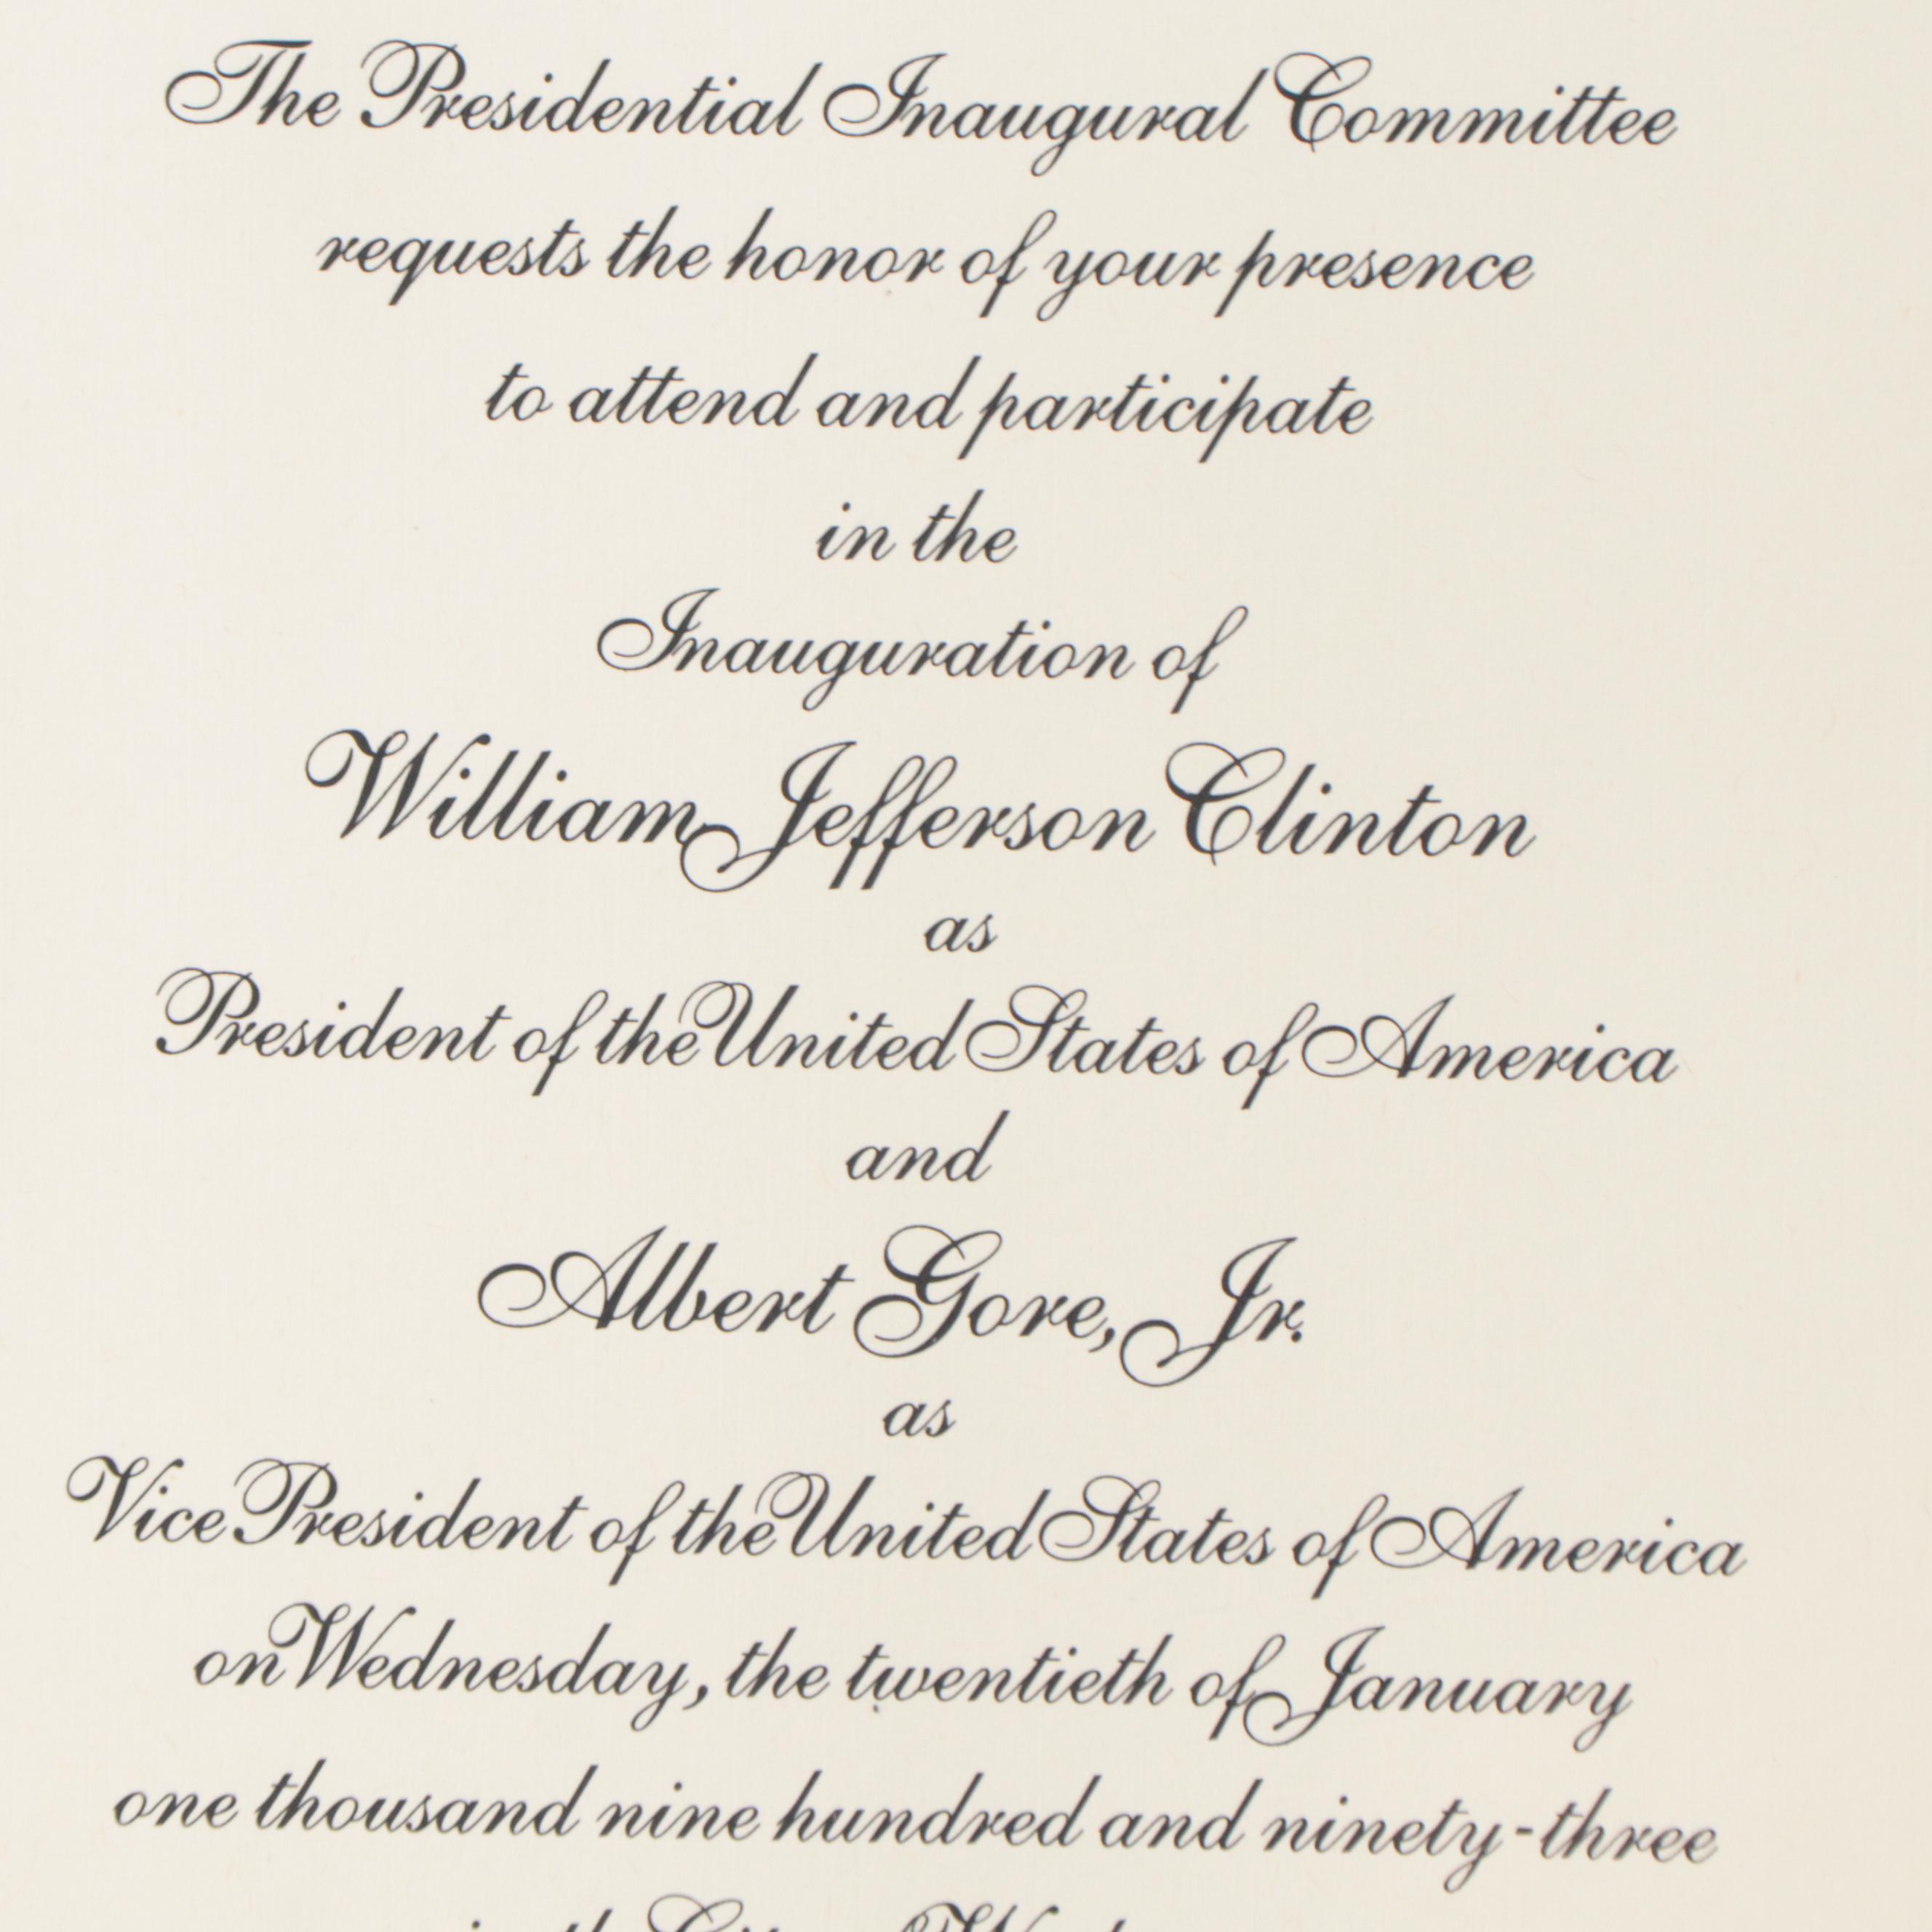 The Presidential Inaugural Committee
requests the honor of your presence
to attend and participate
in the
Inauguration of
William Jefferson Clinton
as
President of the United States of America
and
Albert Gore, Jr.
as
Vice President of the United States of America
on Wednesday, the twentieth of January
one thousand nine hundred and ninety-three